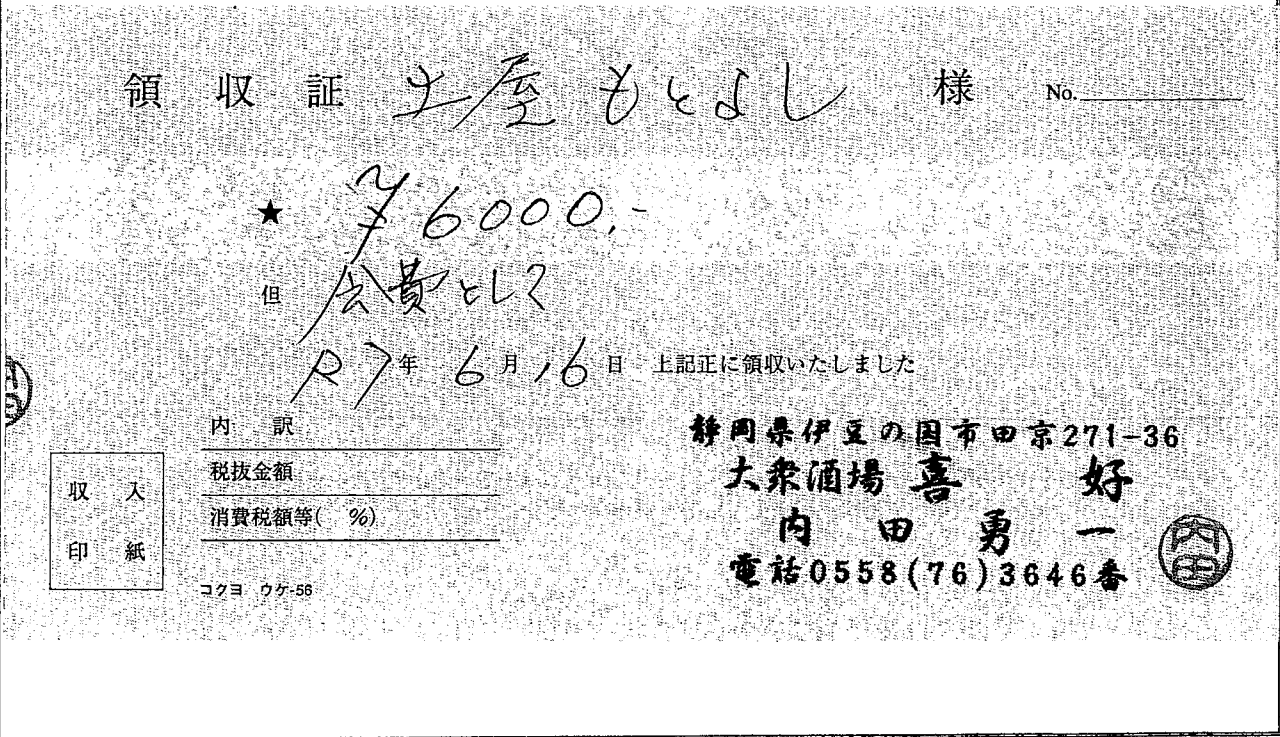 領収証 土屋 もとよし 様 No.
★ ¥6000.-
但 会費として
R7年 6月 16日 上記正に領収いたしました
内 訳
税抜金額
消費税額等( %)
収入
印紙
コクヨ ウケ-56
静岡県伊豆の国市田京271-36
大衆酒場 喜 好
内 田 勇 一
電話0558(76)3646番
内田